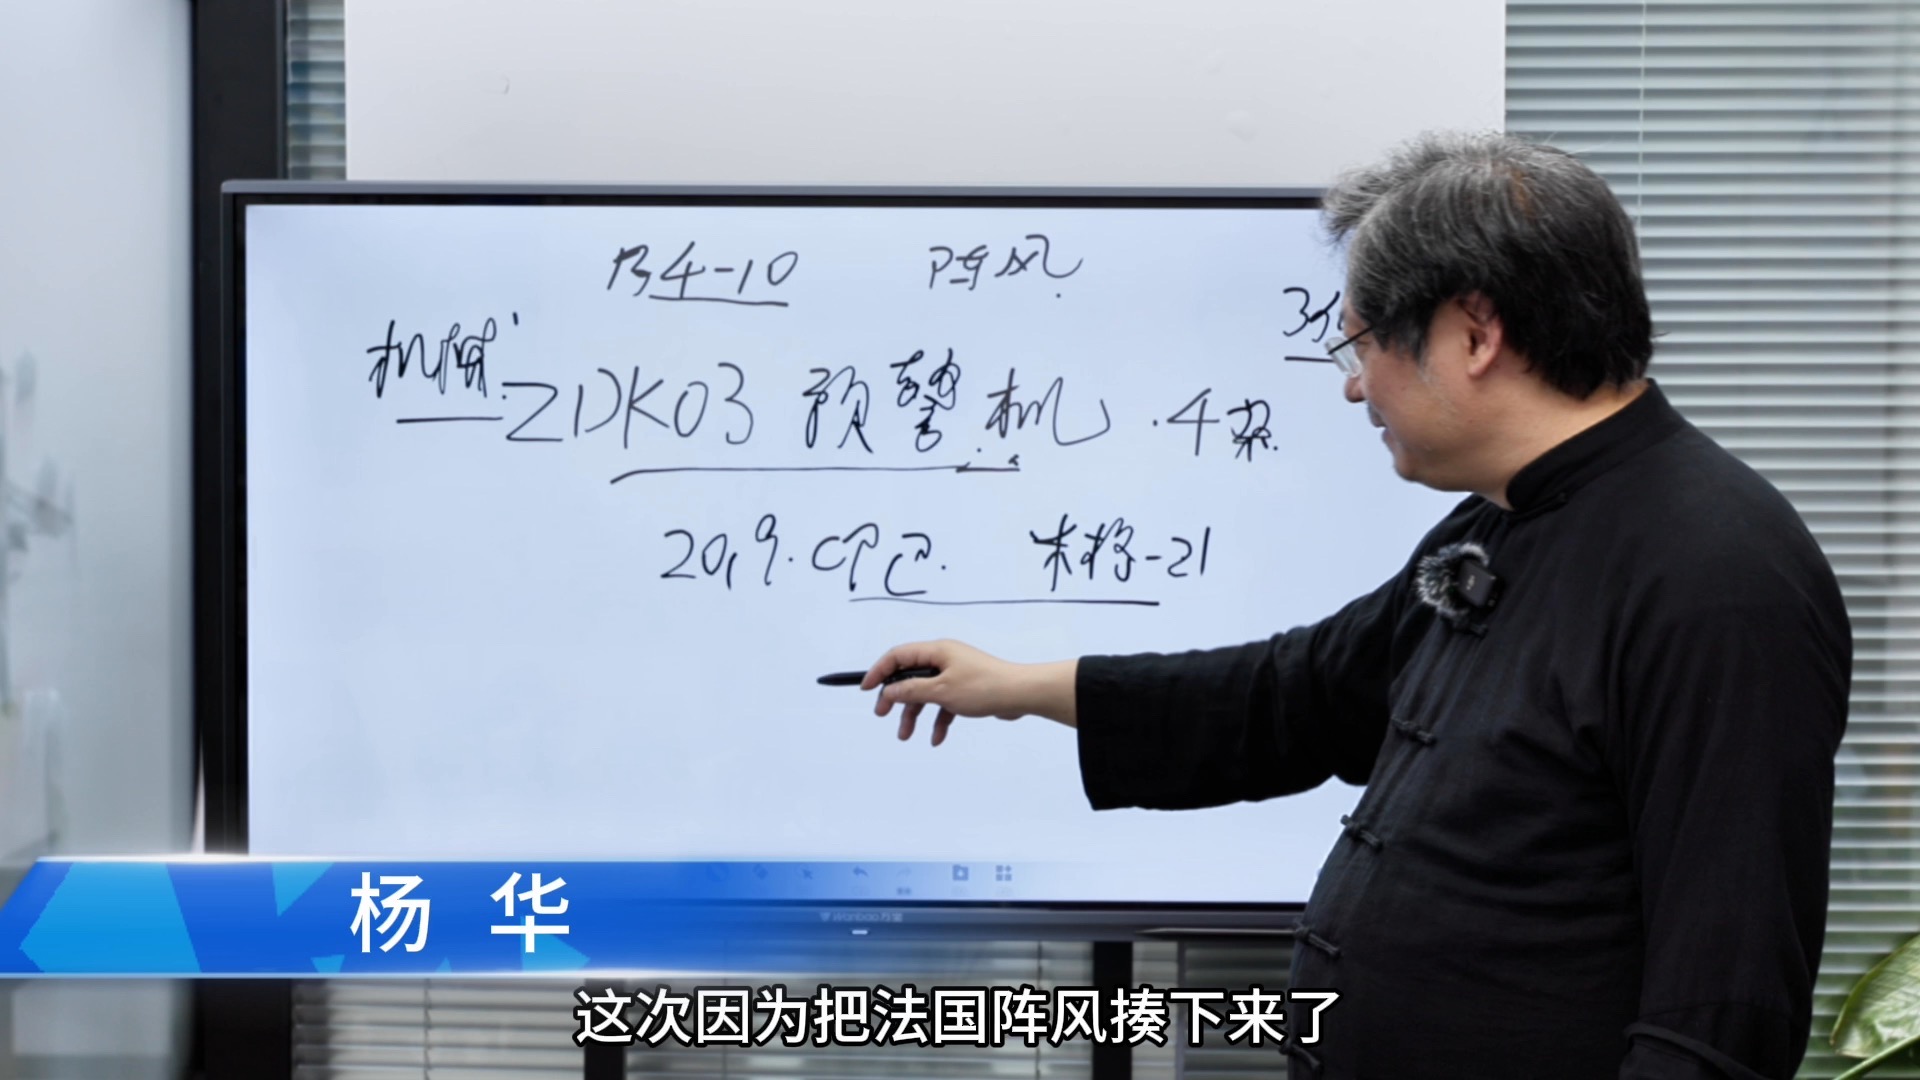 歼-10 阵风
机械
ZDK03 预警机 4架
2019. 印巴. 米格-21
杨 华
这次因为把法国阵风揍下来了